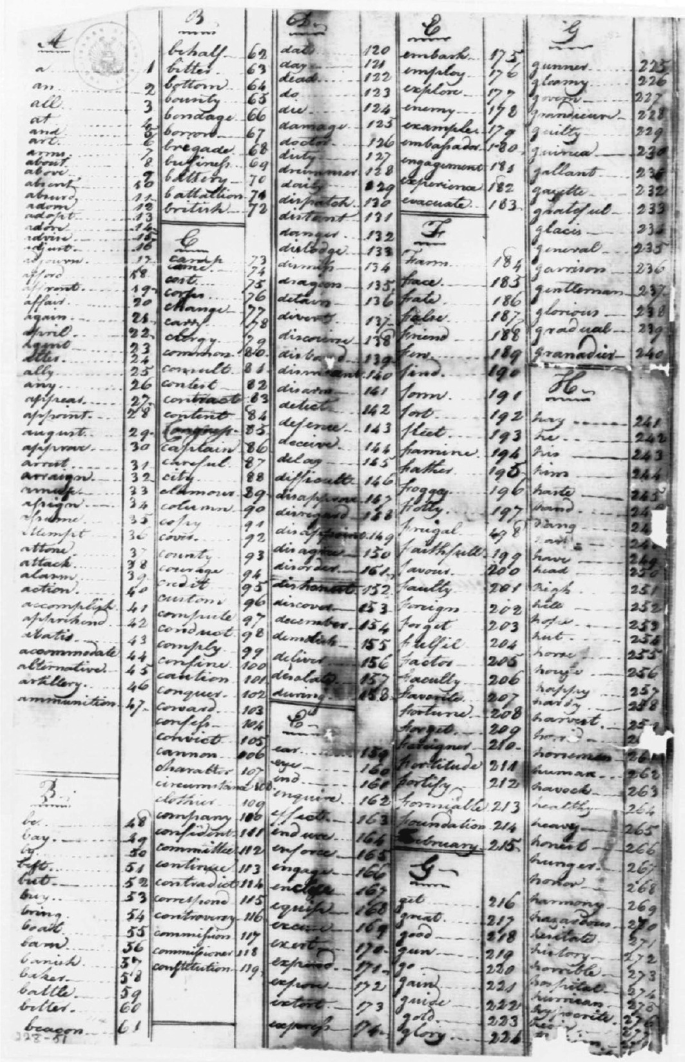 A
a 1
an 2
all 3
at 4
and 5
art 6
arms 7
about 8
above 9
absent 10
absurd 11
adorn 12
adopt 13
adore 14
advise 15
adjust 16
adjourn 17
afford 18
affront 19
affair 20
again 21
april 22
agent 23
alter 24
ally 25
any 26
appear 27
appoint 28
august 29
approve 30
arrest 31
arraign 32
amuse 33
assign 34
assume 35
attempt 36
attone 37
attack 38
alarm 39
action 40
accomplish 41
apprehend 42
abatis 43
accommodate 44
alternative 45
artillery 46
ammunition 47
B
be 48
bay 49
by 50
best 51
but 52
buy 53
bring 54
boat 55
barn 56
banish 57
baker 58
battle 59
better 60
beacon 61
B
behalf 62
bitter 63
bottom 64
bounty 65
bondage 66
borrow 67
brigade 68
business 69
battery 70
battallion 71
british 72
C
camp 73
came 74
cost 75
corps 76
change 77
carry 78
clergy 79
common 80
consult 81
contest 82
contract 83
content 84
Congress 85
captain 86
careful 87
city 88
clamour 89
column 90
copy 91
cover 92
county 93
courage 94
credit 95
custom 96
compute 97
conduct 98
comply 99
confine 100
caution 101
conquer 102
coward 103
confess 104
convict 105
cannon 106
character 107
circumstance 108
clothier 109
company 110
confident 111
committee 112
continue 113
contradict 114
correspond 115
controversy 116
commission 117
commissioner 118
constitution 119
D
date 120
day 121
dead 122
do 123
die 124
damage 125
doctor 126
duty 127
drummer 128
daily 129
dispatch 130
distant 131
danger 132
dislodge 133
dismiss 134
dragoon 135
detain 136
divert 137
discourse 138
disband 139
dismount 140
disarm 141
detect 142
defence 143
deceive 144
delay 145
difficult 146
disapprove 147
disregard 148
disappoint 149
disagree 150
disorder 151
dishonest 152
discover 153
december 154
demolish 155
deliver 156
desolate 157
during 158
E
ear 159
eye 160
end 161
inquire 162
effect 163
endure 164
enforce 165
engage 166
enclose 167
equip 168
excuse 169
exert 170
expend 171
expose 172
extort 173
express 174
E
embark 175
employ 176
explore 177
enemy 178
example 179
embassador 180
engagement 181
experience 182
evacuate 183
F
farm 184
face 185
fate 186
false 187
friend 188
few 189
find 190
form 191
fort 192
fleet 193
famine 194
father 195
foggy 196
folly 197
frugal 198
faithfull 199
favour 200
faulty 201
foreign 202
forget 203
fulfil 204
factor 205
faculty 206
favorite 207
fortune 208
forget 209
foreigner 210
fortitude 211
fortify 212
formidable 213
foundation 214
february 215
G
get 216
great 217
good 218
gun 219
go 220
gain 221
guide 222
gold 223
glory 224
G
gunner 225
gloomy 226
govern 227
grandieure 228
guilty 229
guinea 230
gallant 231
gazette 232
grateful 233
glacis 234
general 235
garrison 236
gentleman 237
glorious 238
gradual 239
granadier 240
H
hay 241
he 242
his 243
him 244
haste 245
hand
hang
have 249
head 250
high 251
hill 252
hope 253
hut 254
horse 255
house 256
happy 257
hardy 258
harvest 259
horrid
horsemen 261
human 262
havock 263
healthy 264
heavy 265
honest 266
hunger 267
honor 268
harmony 269
hazardous 270
hesitate 271
history 272
horrible 273
hospital 274
hurrican 275